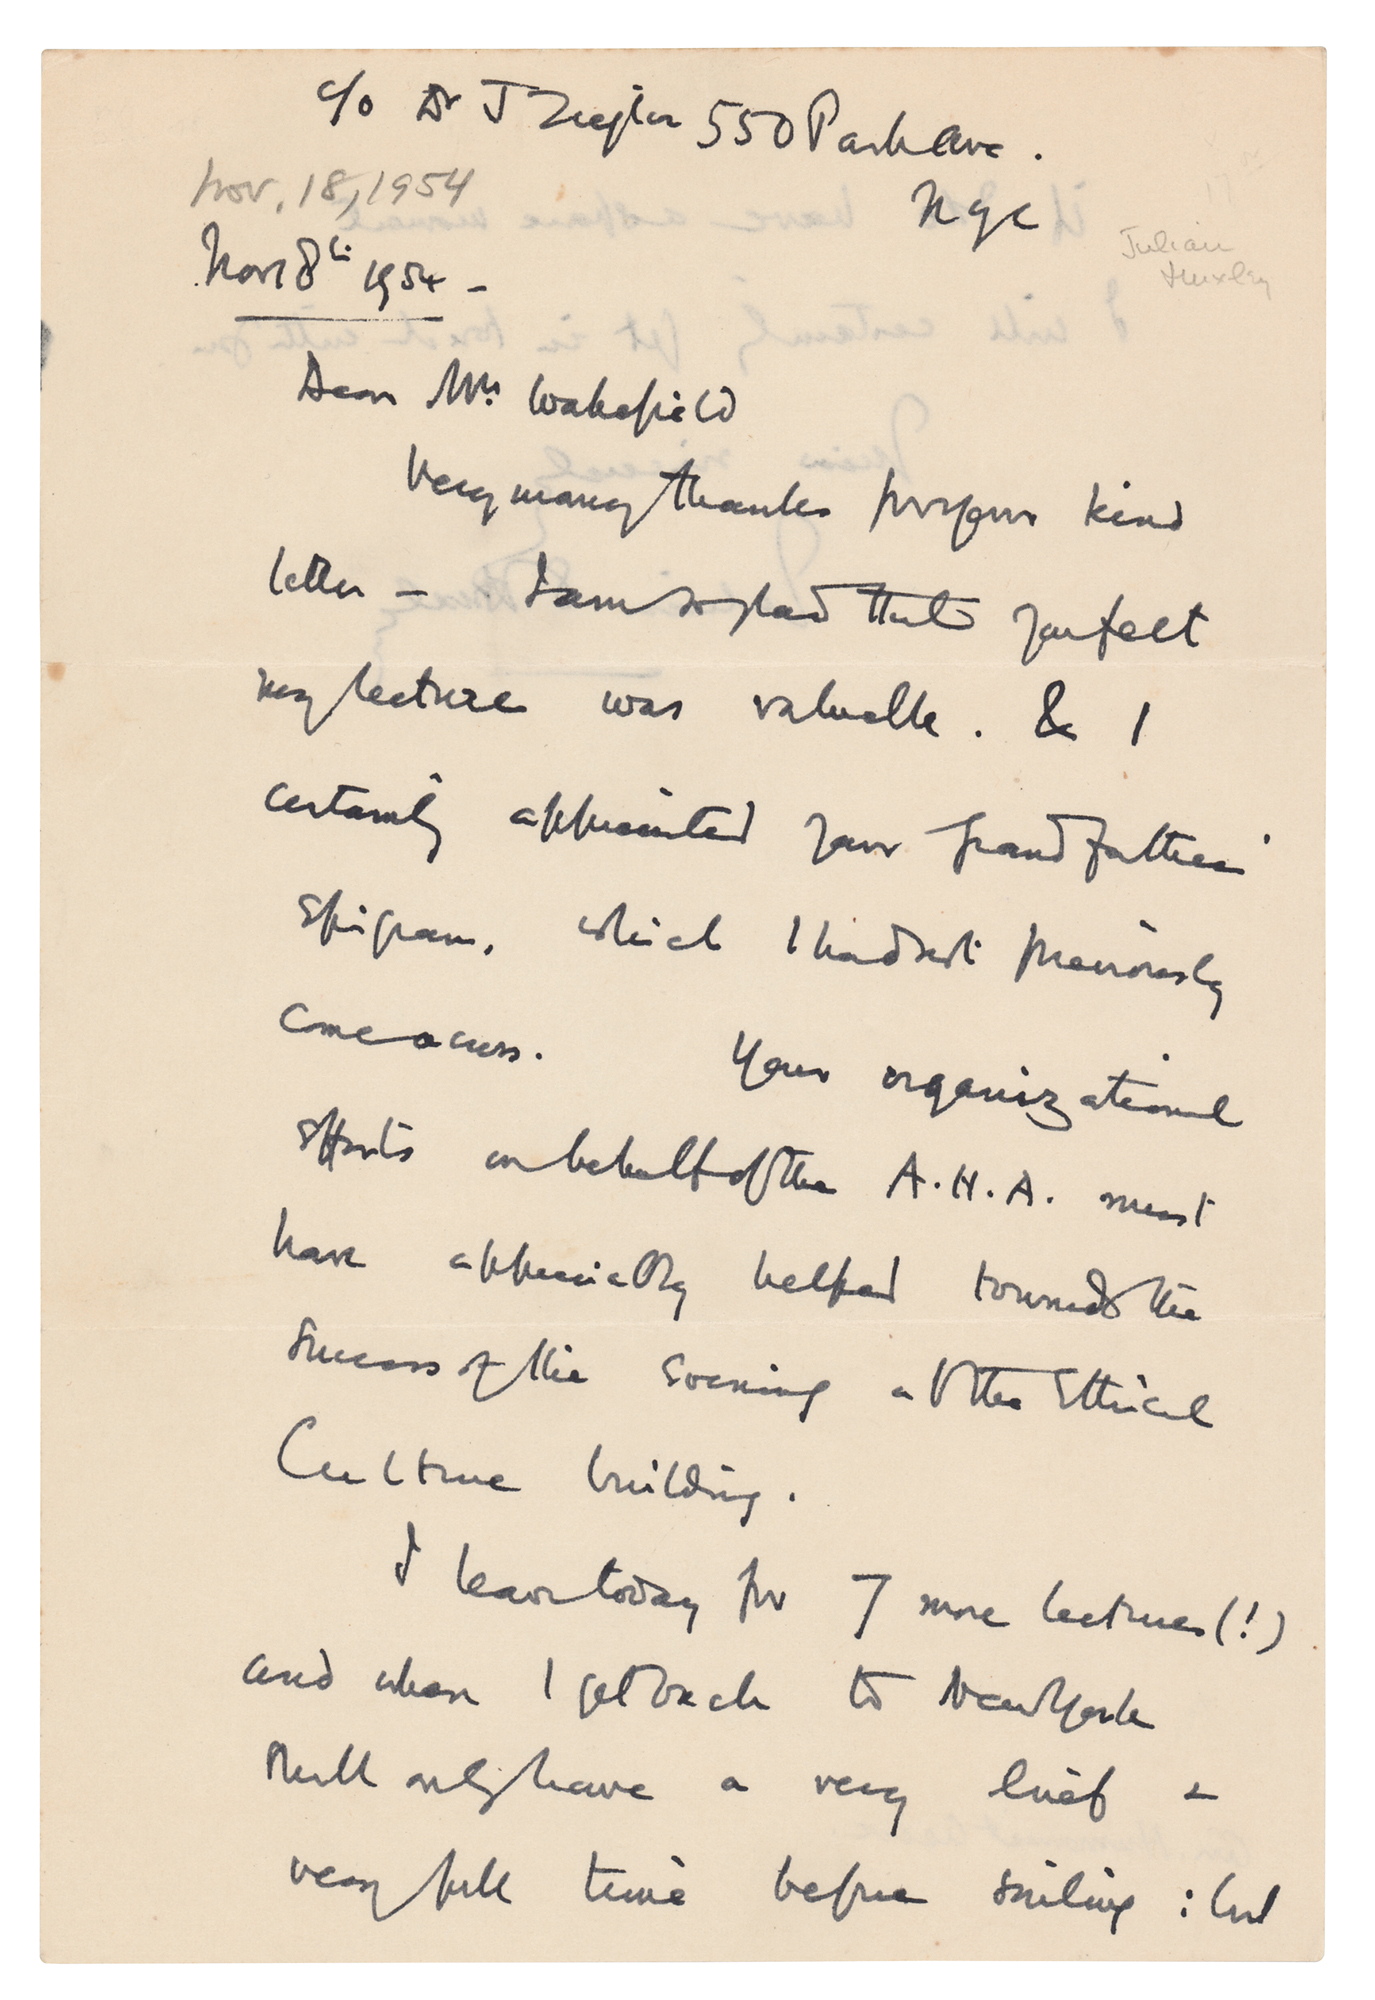 c/o Dr J Ziegler 550 Park Ave.
NYC
Nov. 18, 1954
Julian
Huxley
Nov 18th 1954 -
Dear Mrs. Wakefield
Very many thanks for your kind
letter - I am so glad that you felt
my lecture was valuable. & I
certainly appreciated your grandfather's
epigram, which I had not previously
come across. Your organizational
efforts on behalf of the A.H.A. must
have appreciably helped towards the
success of the evening at the Ethical
Culture building.
I leave today for 7 more lectures (!)
and when I get back to New York
I will only have a very brief &
very full time before sailing: but
if have a spare moment
I will certainly get in touch with you
Yours sincerely
Julian Huxley